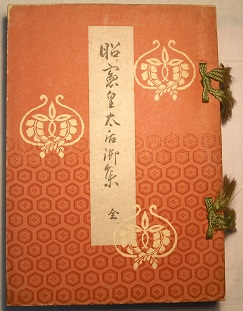 昭憲皇太后御集 全